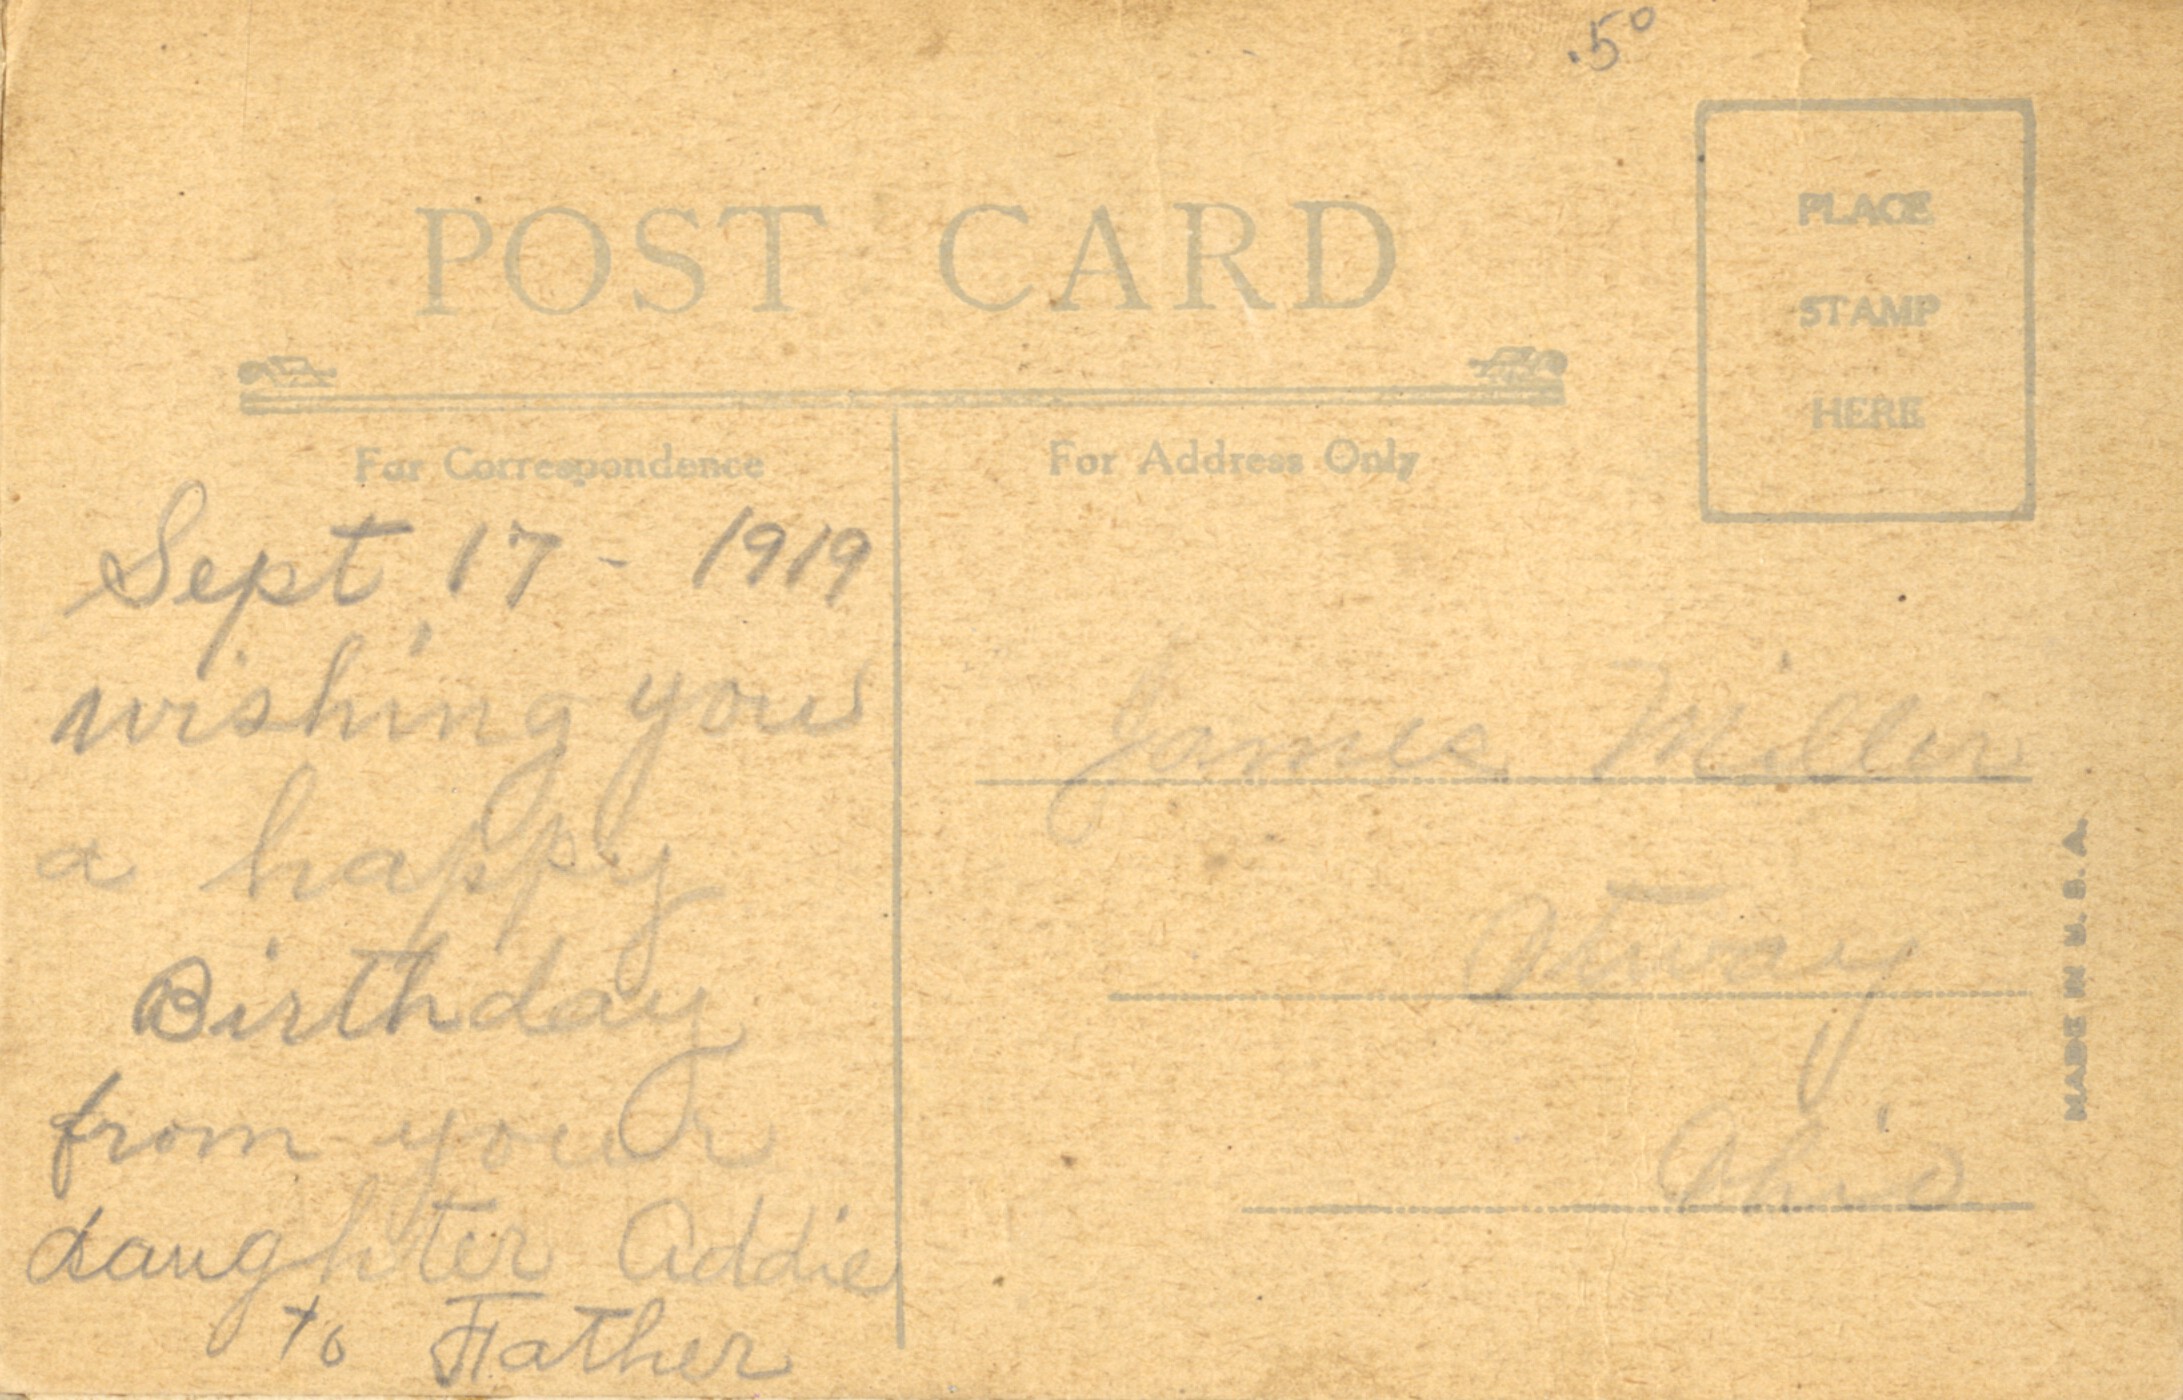 .50
POST CARD
PLACE
STAMP
HERE
For Correspondence
For Address Only
Sept 17 - 1919
wishing you
a happy
Birthday
from your
daughter Addie
to Father
James Miller
Otway
Ohio
MADE IN U.S.A.